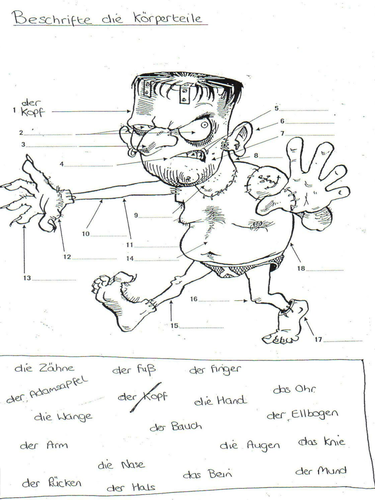 Beschrifte die Körperteile
1 der Kopf
2
3
4
5
6
7
8
9
10
11
12
13
14
15
16
17
18
die Zähne der Fuß der Finger
der Adamsapfel der Kopf die Hand das Ohr
die Wange der Bauch der Ellbogen
der Arm die Augen das Knie
die Nase das Bein der Mund
der Rücken der Hals